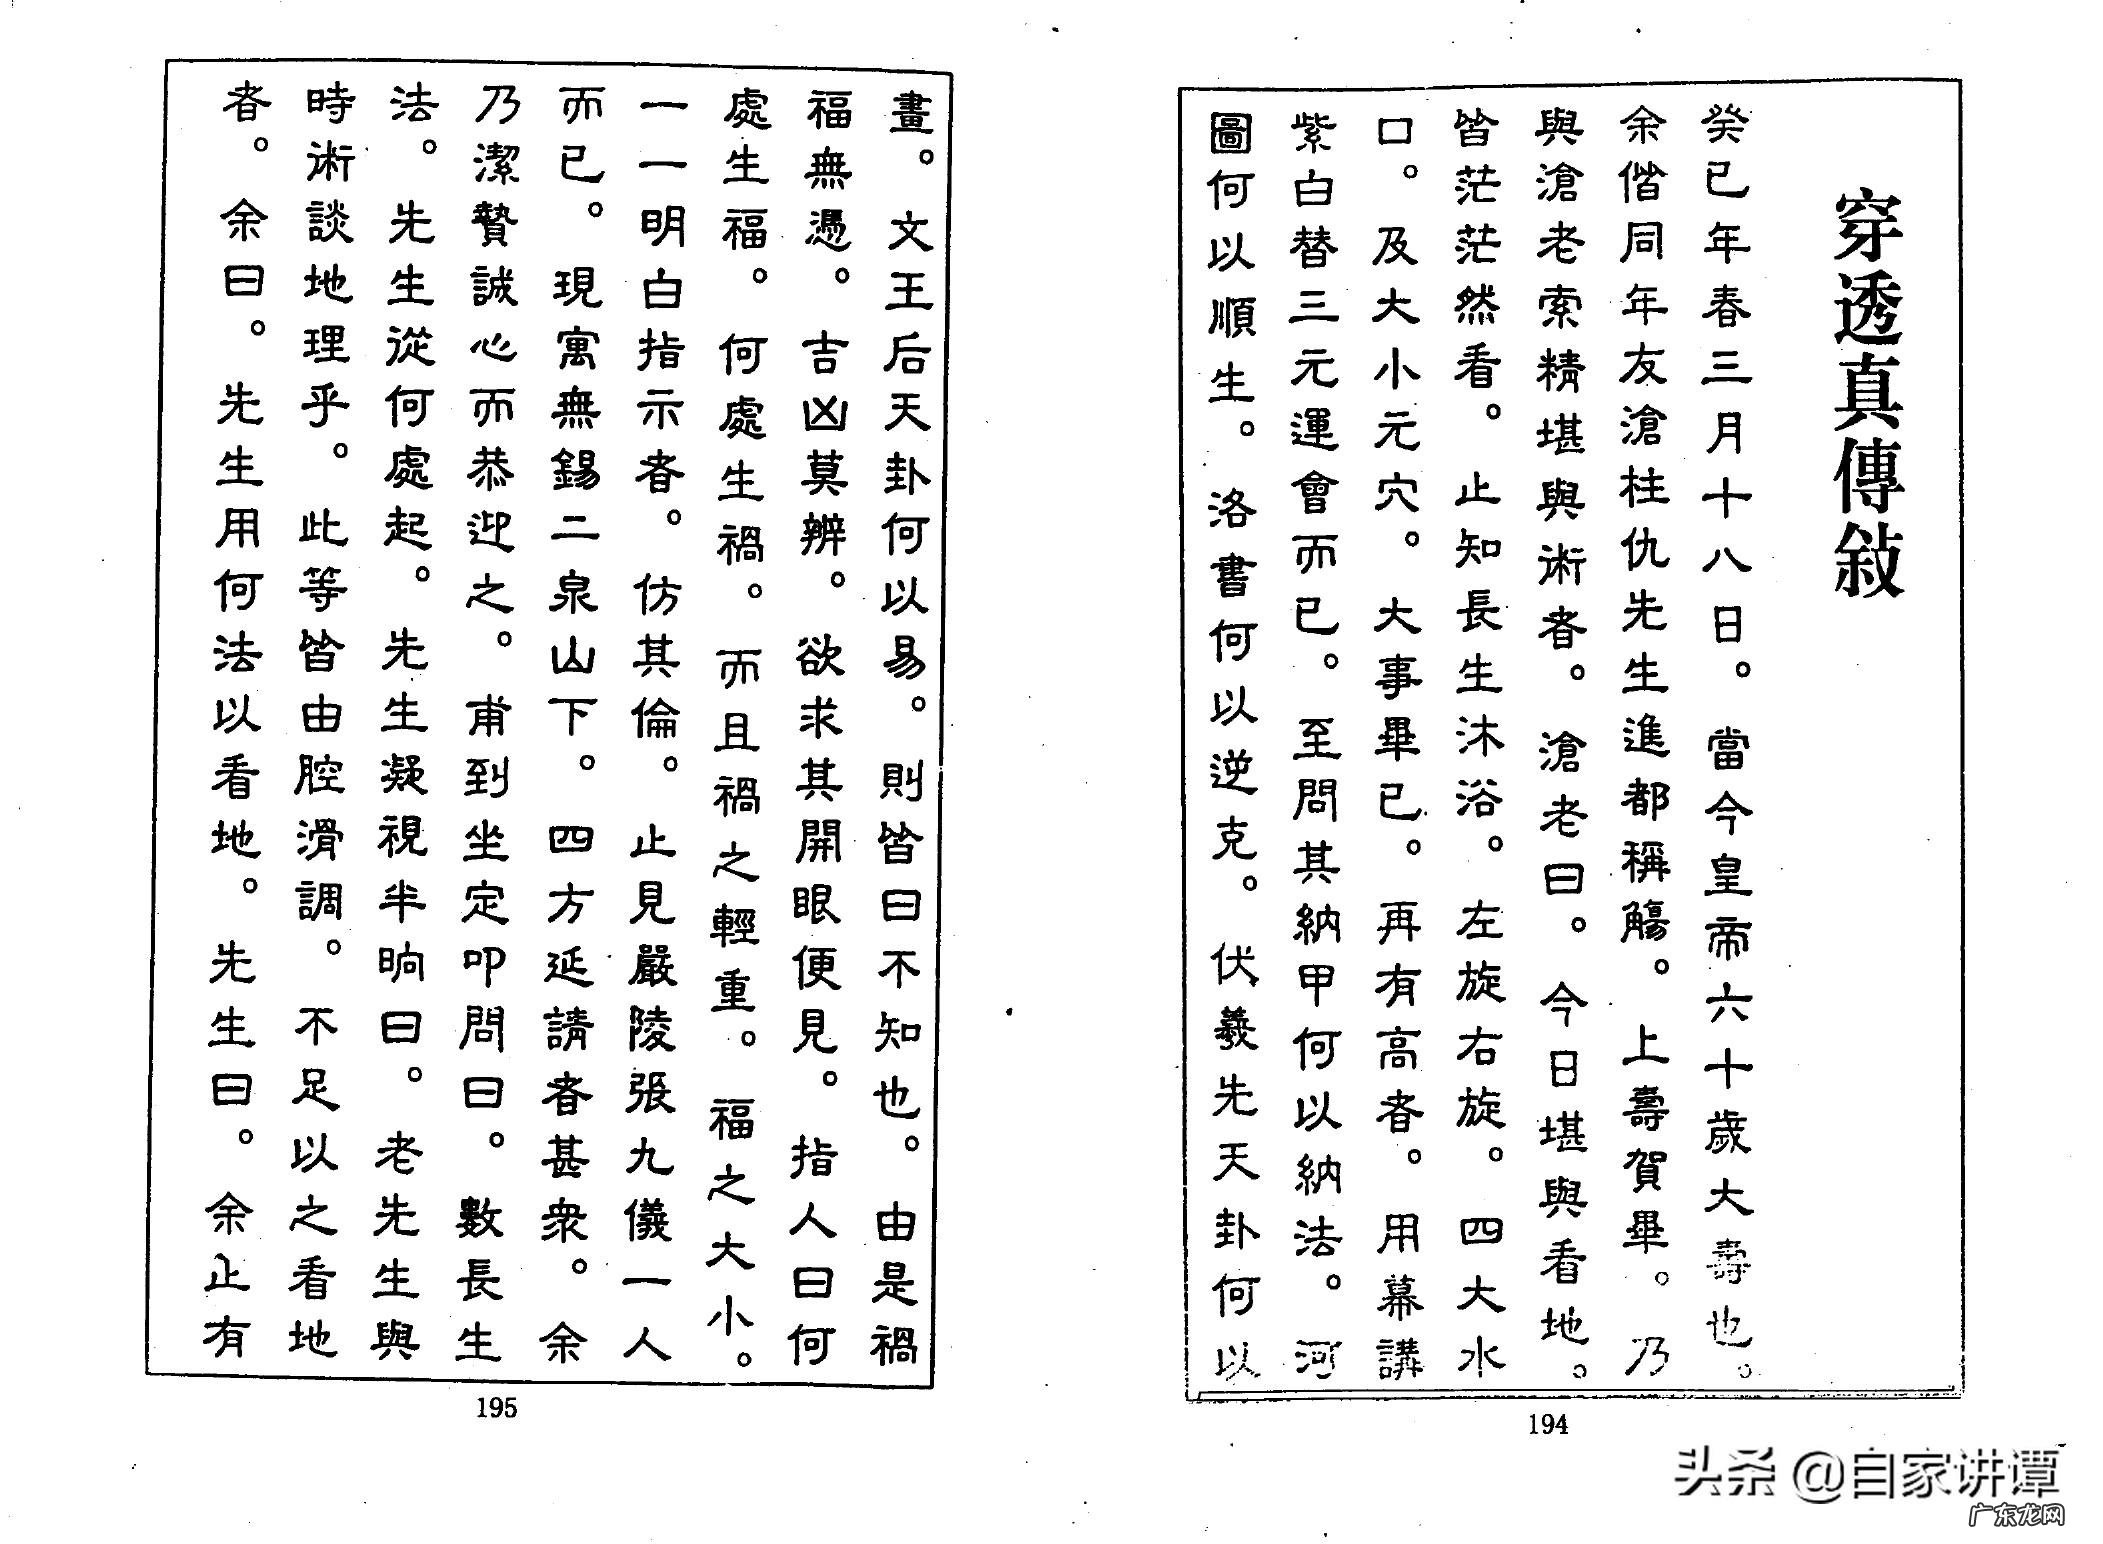 穿透真傳敍
癸巳年春三月十八日。當今皇帝六十歲大壽也。
余偕同年友滄柱仇先生進都稱觴。上壽賀畢。乃
與滄老索精堪與術者。滄老曰。今日堪與看地。
皆茫茫然看。止知長生沐浴。左旋右旋。四大水
口。及大小元穴。大事畢已。再有高者。用幕講
紫白替三元運會而已。至問其納甲何以納法。河
圖何以順生。洛書何以逆克。伏羲先天卦何以
194
畫。文王后天卦何以易。則皆曰不知也。由是禍
福無憑。吉凶莫辨。欲求其開眼便見。指人曰何
處生福。何處生禍。而且禍之輕重。福之大小。
一一明白指示者。仿其倫。止見嚴陵張九儀一人
而已。現寓無錫二泉山下。四方延請者甚衆。余
乃潔贄誠心而恭迎之。甫到坐定叩問曰。數長生
法。先生從何處起。先生凝視半晌曰。老先生與
時術談地理乎。此等皆由腔滑調。不足以之看地
者。余曰。先生用何法以看地。先生曰。余止有
195
头杀 @自家讲谭
广东龙网